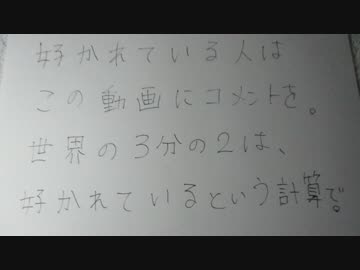 好かれている人は
この動画にコメントを。
世界の3分の2は、
好かれているという計算で。